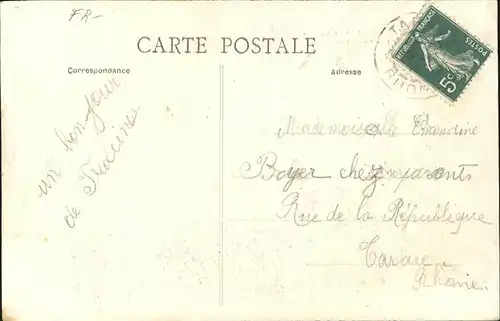 FR-
CARTE POSTALE
Correspondance
Adresse
un bon jour
de Francine
TA
RHÔNE
REPUBLIQUE FRANÇAISE
POSTES
5c
Mademoiselle
Boyer chez parents
Rue de la République
Tarare
Rhône